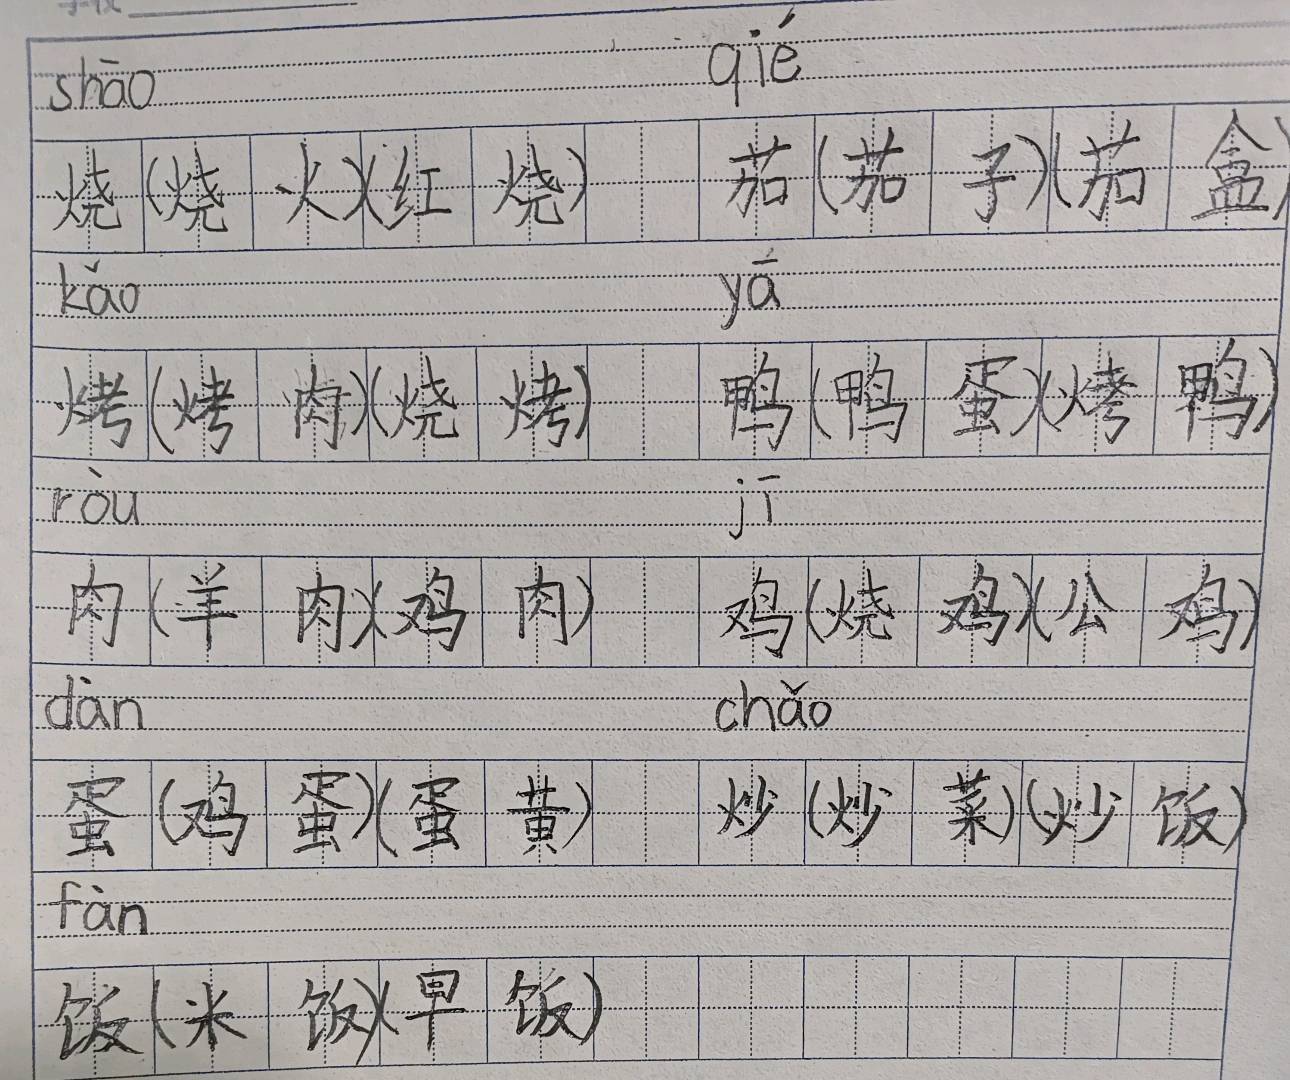 shāo qié
烧(烧火)(红烧) 茄(茄子)(茄盒)
kǎo yā
烤(烤肉)(烧烤) 鸭(鸭蛋)(烤鸭)
ròu jī
肉(羊肉)(鸡肉) 鸡(烧鸡)(公鸡)
dàn chǎo
蛋(鸡蛋)(蛋黄) 炒(炒菜)(炒饭)
fàn
饭(米饭)(早饭)